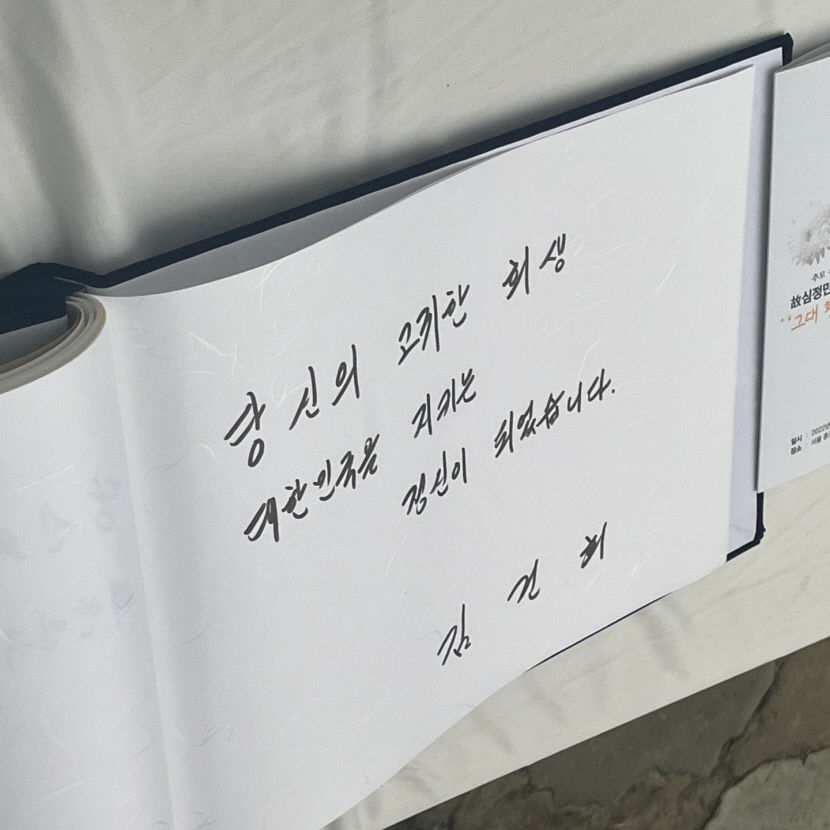 당신의 고귀한 희생
대한민국을 지키는
정신이 되었습니다.
김건희
추모
故심정민
"그대
일시 : 2022년
장소 : 서울